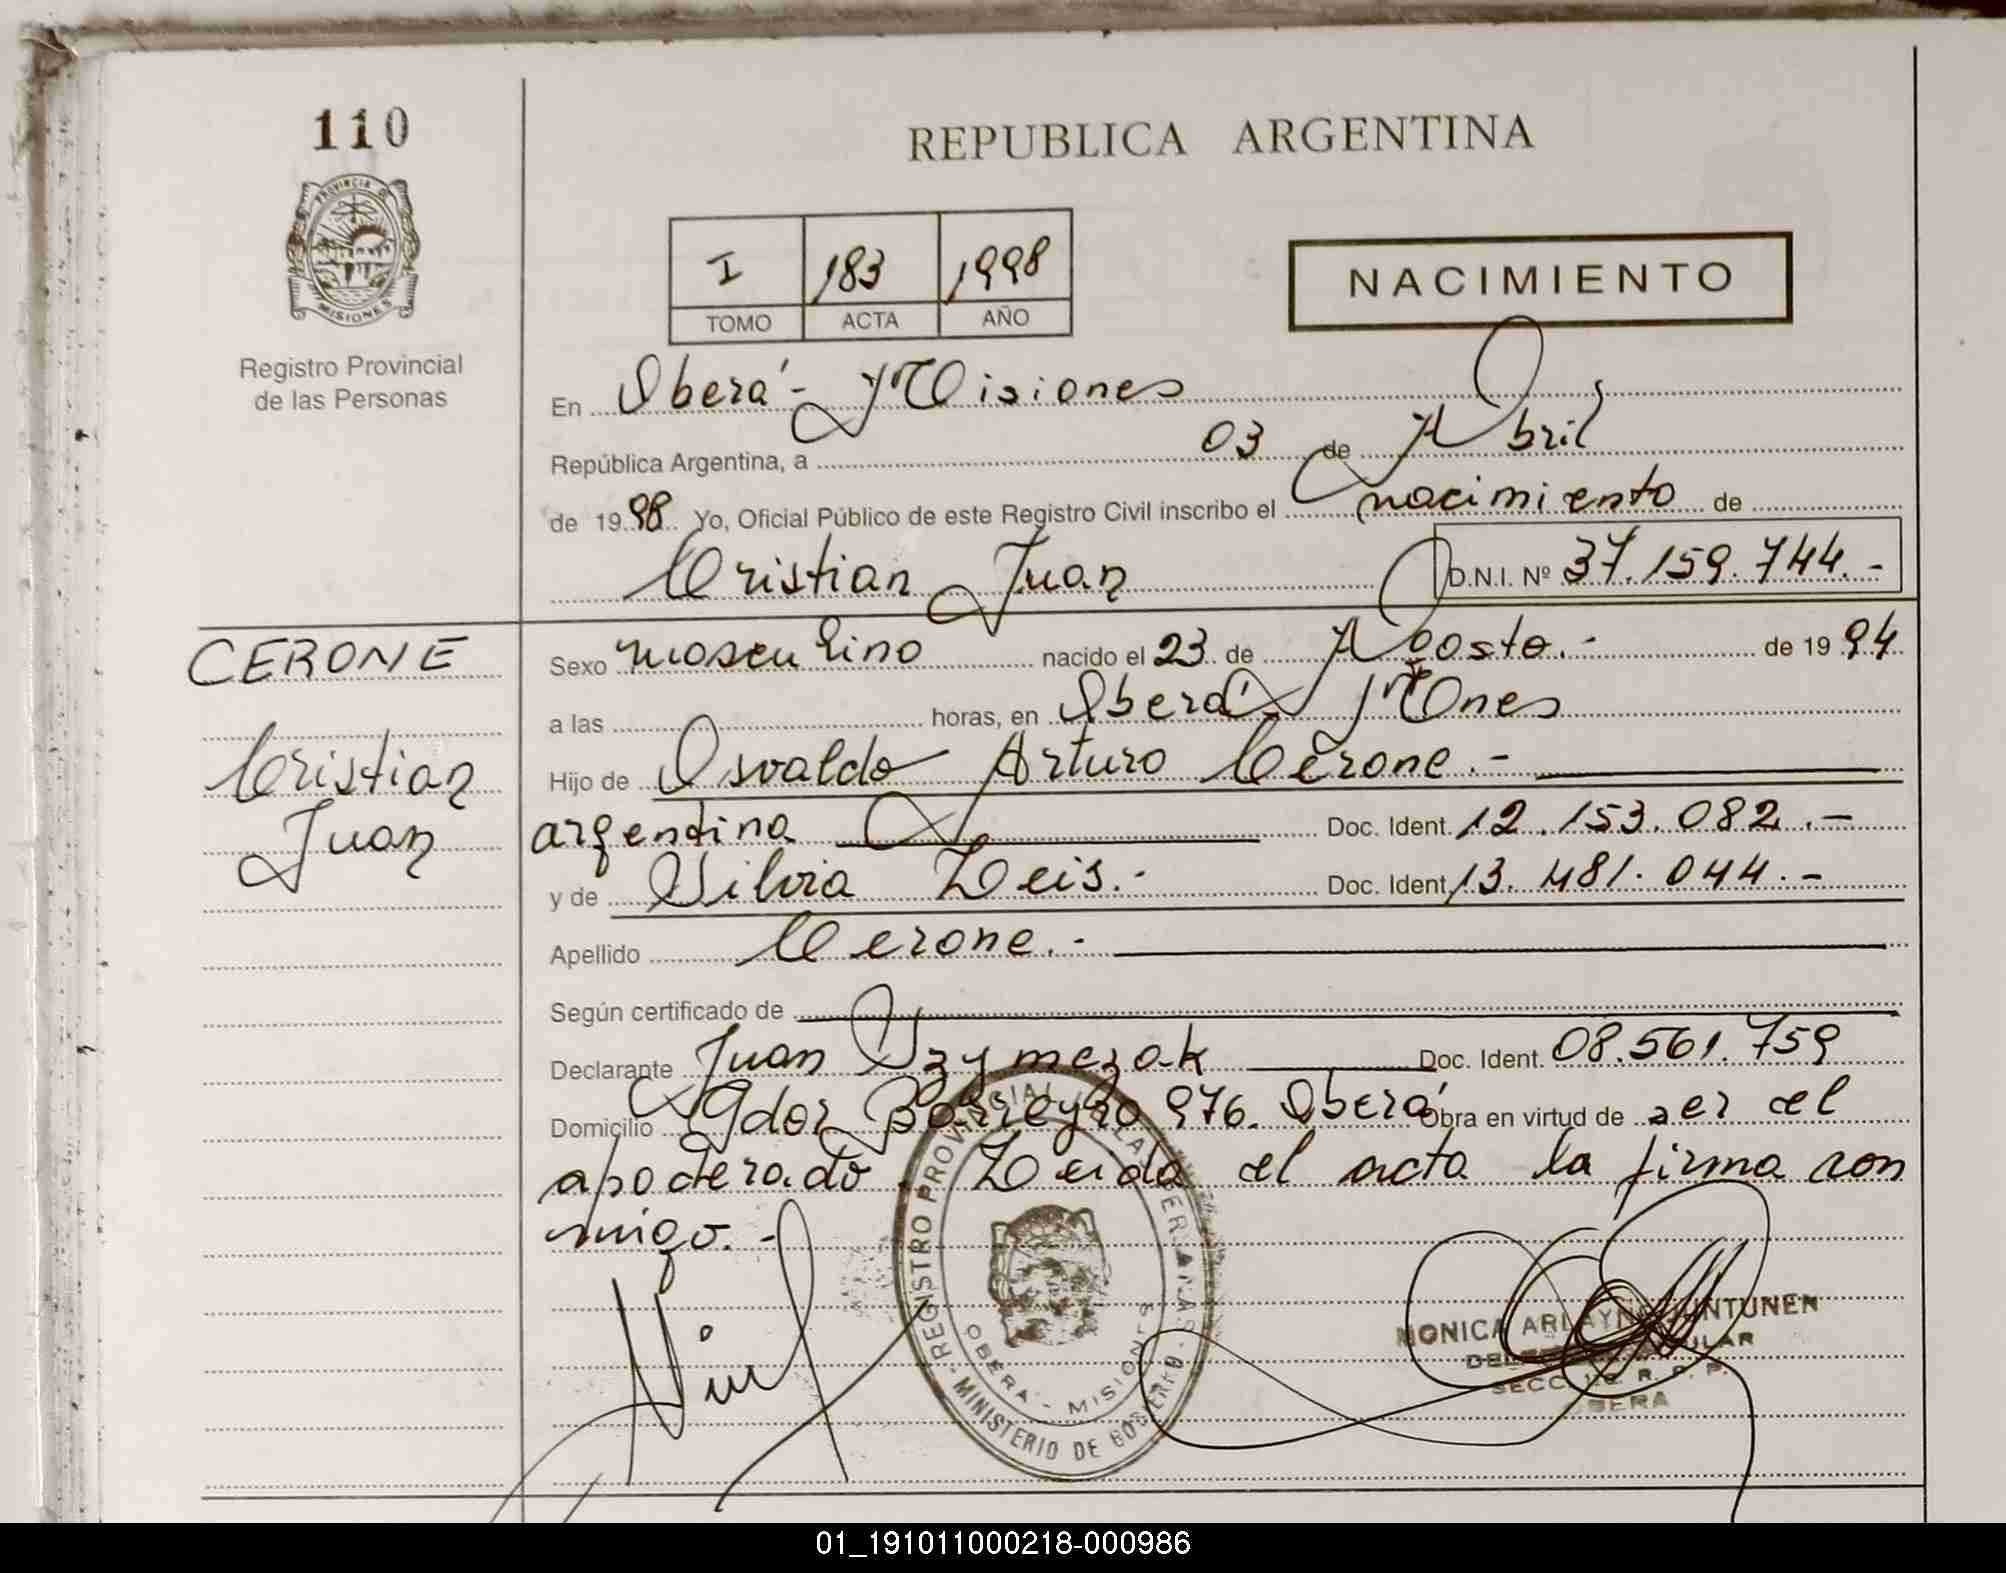 110
REPUBLICA ARGENTINA
PROVINCIA DE
MISIONES
Registro Provincial
de las Personas
I 183 1998
TOMO ACTA AÑO
NACIMIENTO
En Oberá - Misiones
República Argentina, a 03 de Abril
de 19 98 Yo, Oficial Público de este Registro Civil inscribo el nacimiento de
Cristian Juan D.N.I. Nº 37.159.744.-
CERONE
Cristian
Juan
Sexo masculino nacido el 23 de Agosto.- de 19 94
a las horas, en Oberá Mnes
Hijo de Osvaldo Arturo Cerone.-
argentina Doc. Ident. 12.153.082.-
y de Silvia Leis.- Doc. Ident. 13.481.044.-
Apellido Cerone.-
Según certificado de
Declarante Juan Szymczak Doc. Ident. 08.561.759
Domicilio Ador Barreyro 976. Oberá Obra en virtud de ser el
apoderado. Leida el acta la firma con
migo.-
REGISTRO PROVINCIAL DE LAS PERSONAS
OBERA - MISIONES
MINISTERIO DE GOBIERNO
MONICA
SECC. R. P. P.
OBERA
01_191011000218-000986